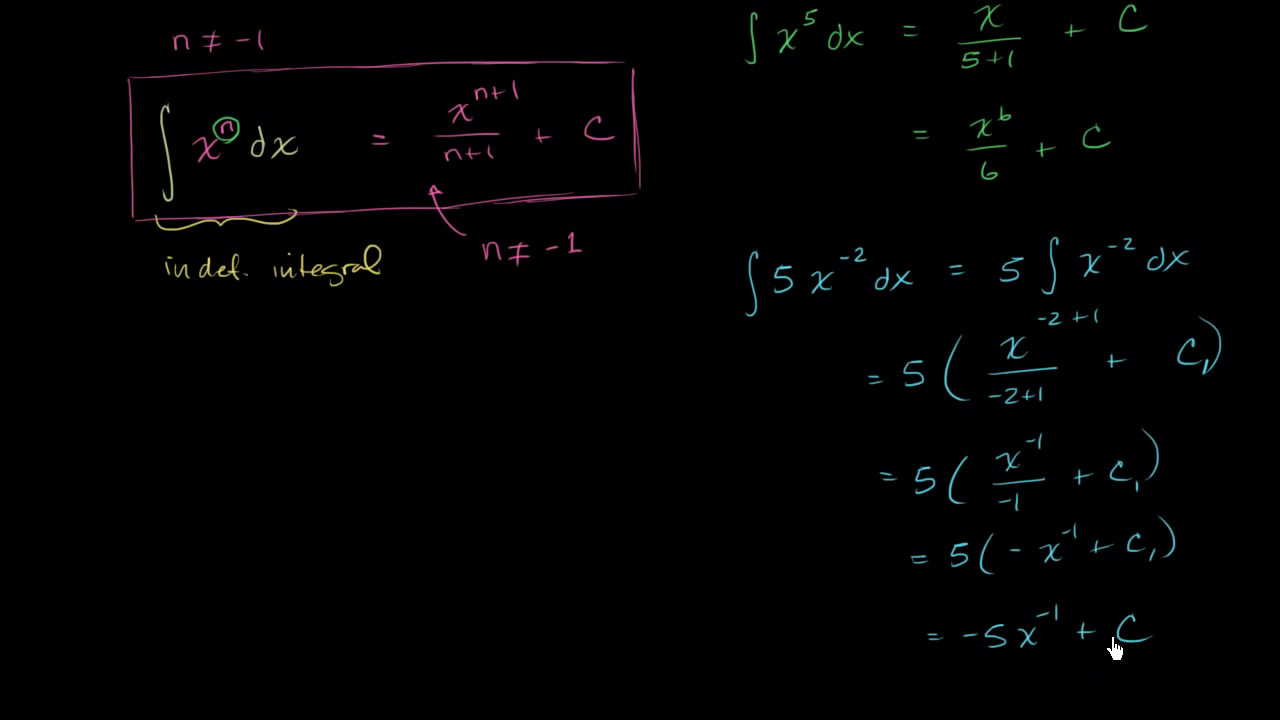 n ≠ -1
∫ xⁿ dx = xⁿ⁺¹/(n+1) + C
n ≠ -1
indef. integral
∫ x⁵ dx = x/(5+1) + C
= x⁶/6 + C
∫ 5x⁻² dx = 5 ∫ x⁻² dx
= 5( x⁻²⁺¹/(-2+1) + C₁)
= 5( x⁻¹/-1 + C₁)
= 5( - x⁻¹ + C₁)
= -5x⁻¹ + C